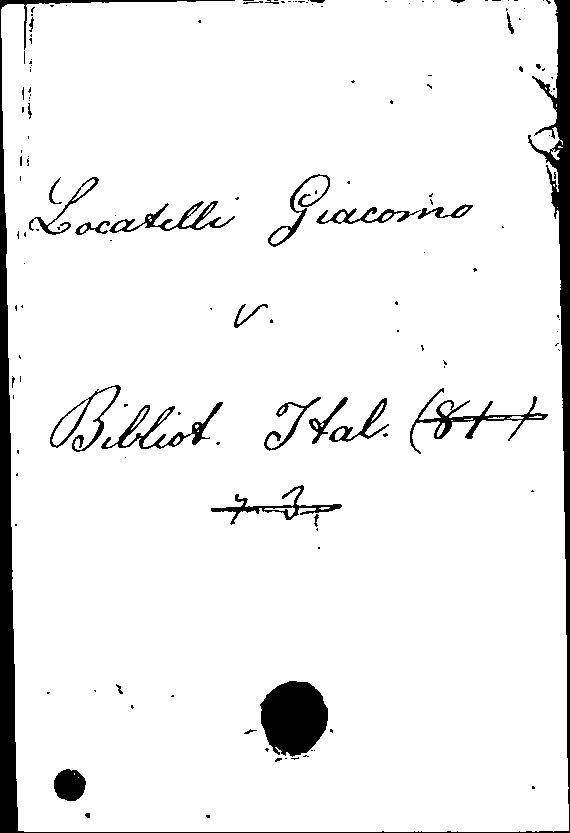 Locatelli Giacomo
v.
Bibliot. Ital. (81)
7. 3,